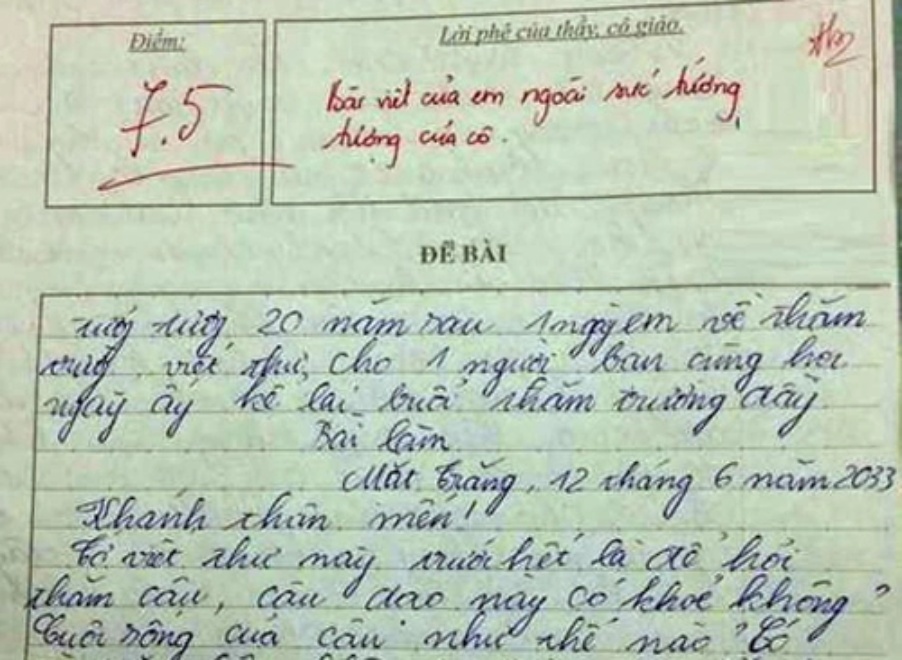 Điểm:
7.5
Lời phê của thầy, cô giáo.
Bài viết của em ngoài sức tưởng
tượng của cô.
ĐỀ BÀI
20 năm sau 1 ngày em về thăm
viết thư cho 1 người bạn cùng học
ngày ấy kể lại buổi thăm trường đầy
Bài làm
Mặt Trăng, 12 tháng 6 năm 2033
Khánh thân mến!
Tớ viết thư này trước hết là để hỏi
thăm cậu, cậu dạo này có khoẻ không?
Cuộc sống của cậu như thế nào? Có